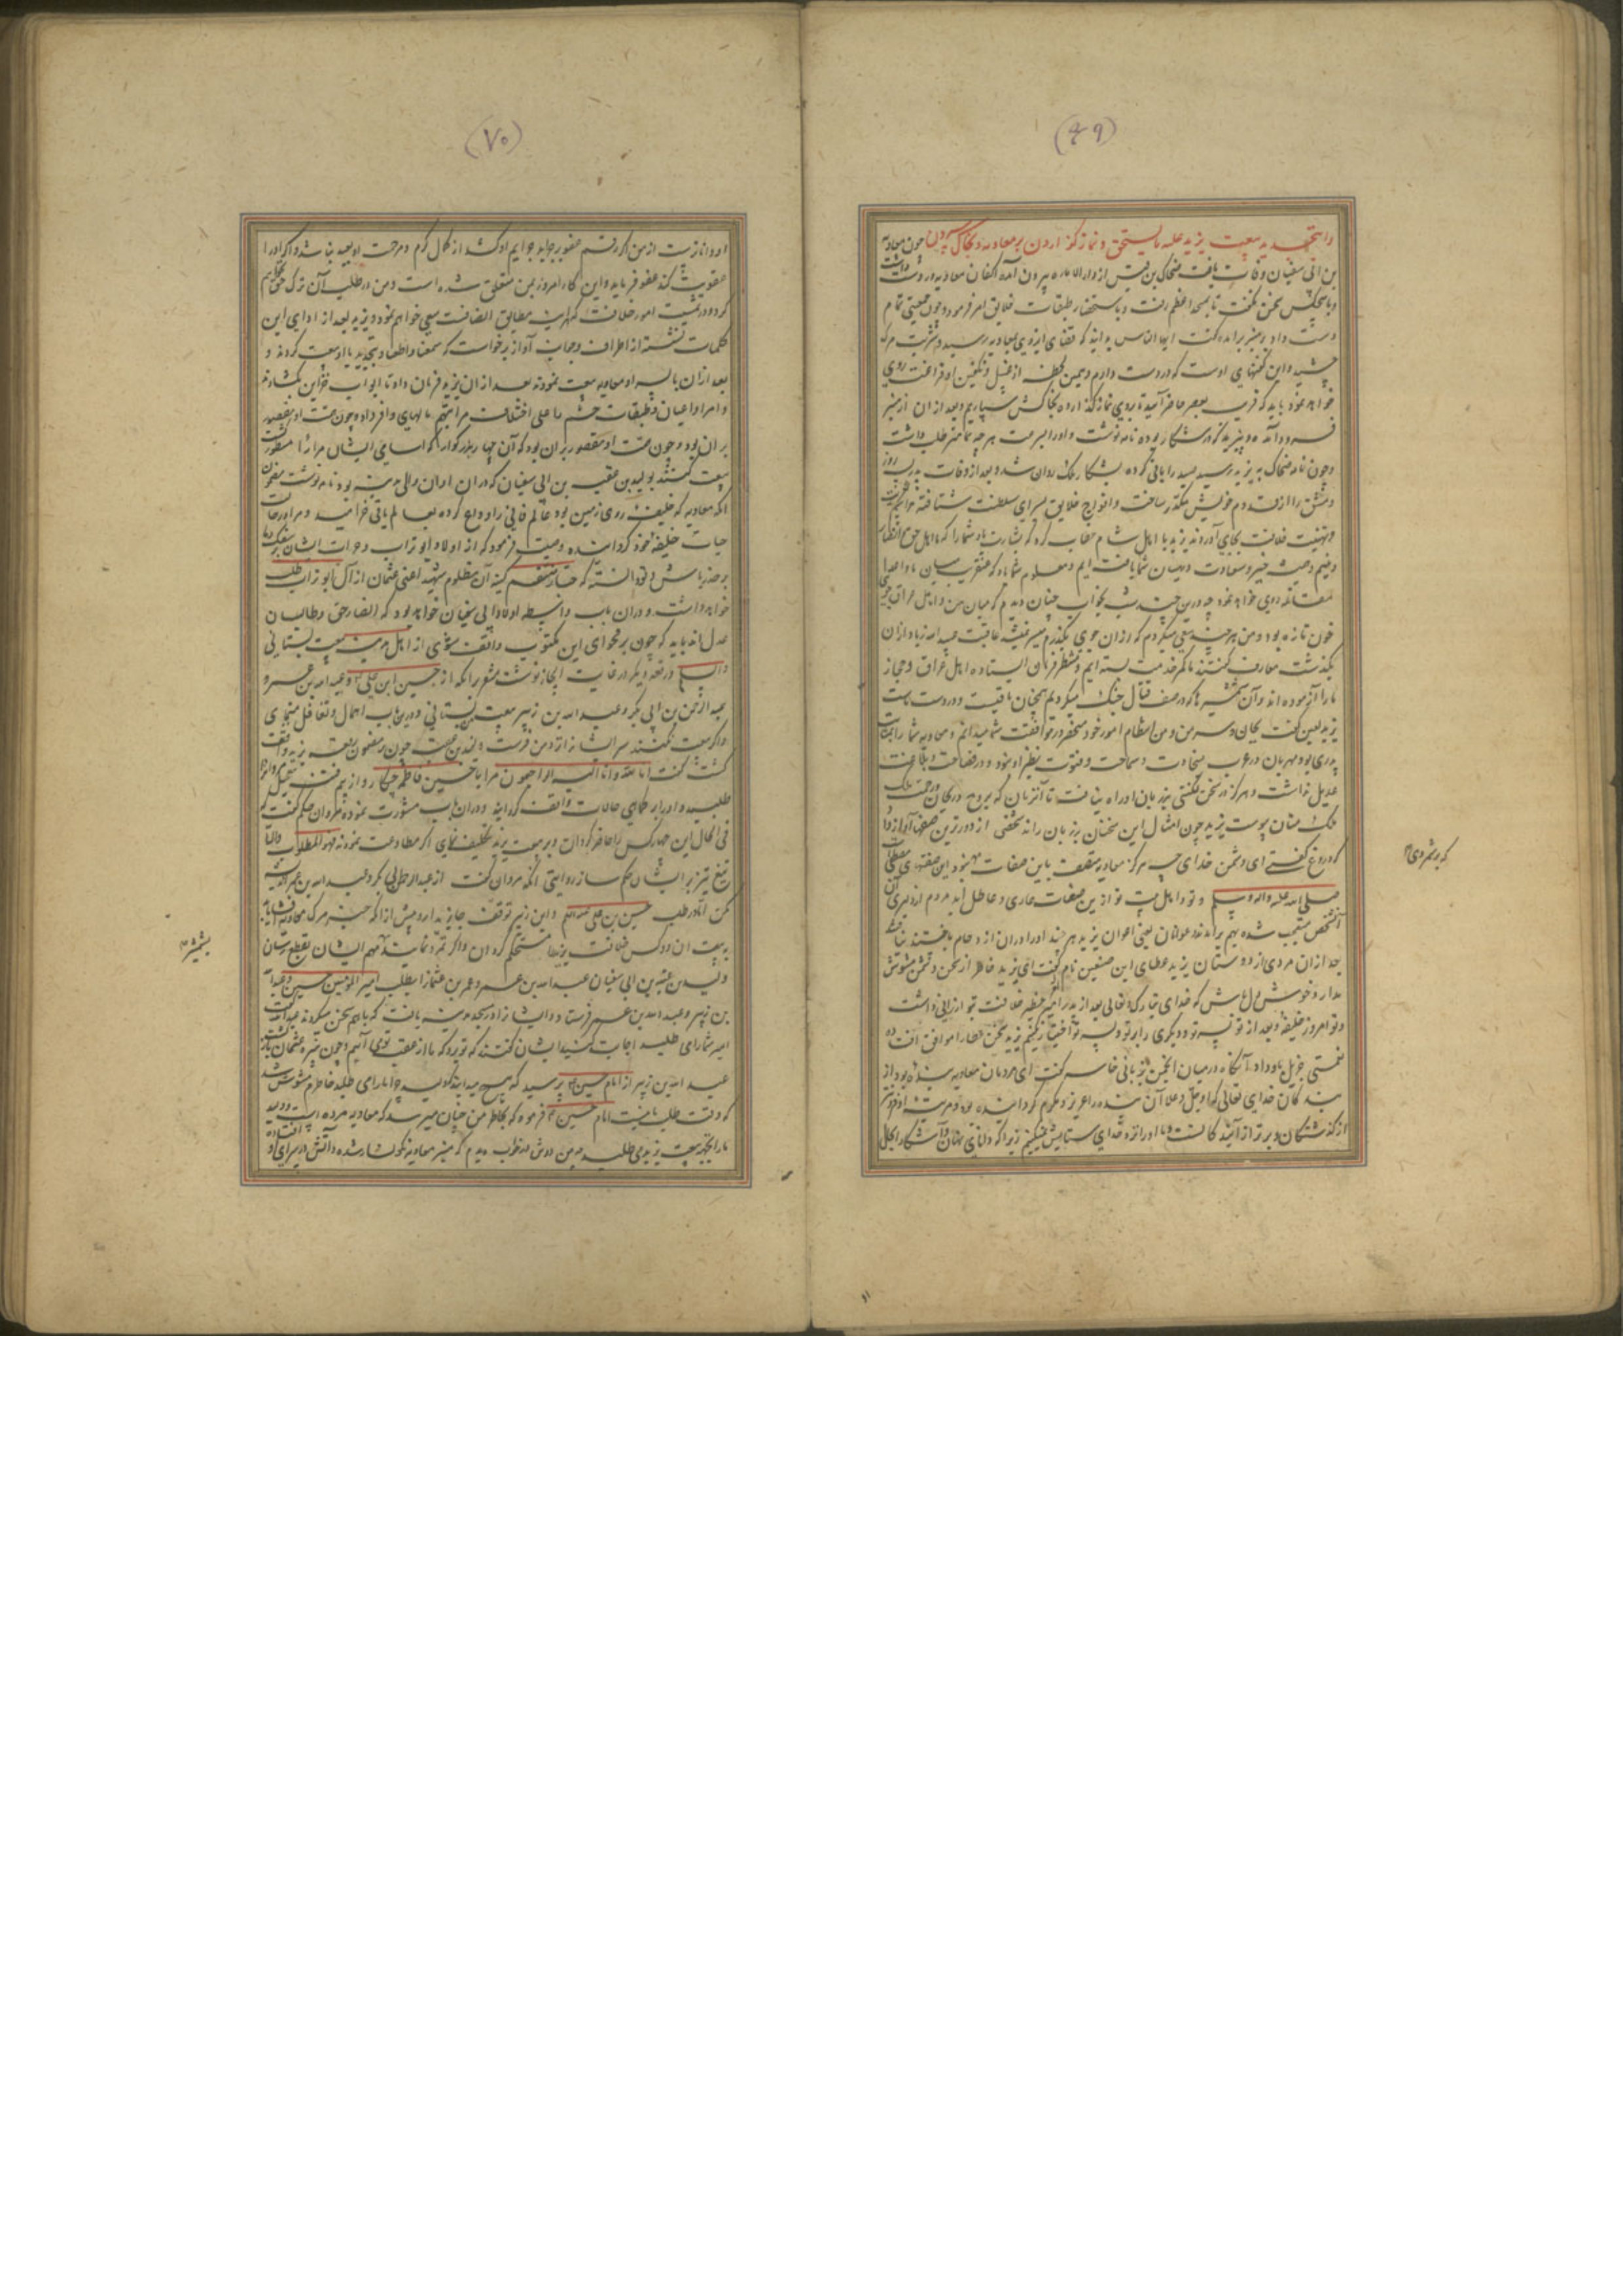 (٦٩)
بیعت یزید علیه ما یستحق و نماز گزاردن بر معاویه و بخاک سپردن چون معاویه
بن ابی سفیان وفات یافت ضحاک بن قیس از دار الاماره بیرون آمده اکفان معاویه در دست داشت
و با هیچکس سخن نگفت تا بمسجد اعظم رفت و باستحضار طبقات خلایق امر فرمود و چون جمعیتی تمام
دست داد بر منبر برآمده گفت ایها الناس بدانید که قضای ایزدی بمعاویه رسید و شربت مرگ
چشید و این کفنهای اوست که در دست دارم و همین لحظه از غسل و تکفین او فراغت روی
خواهد نمود باید که قریب بعصر حاضر آیید تا بروی نماز گذارده بخاکش سپاریم و بعد از ان از منبر
فرود آمده و یزید که در شکار بوده نامه نوشت و او را بسرعت هر چه تمامتر طلب داشت
و چون نامه ضحاک به یزید رسید
دمشق را از قدوم خویش مکدر ساخت و افواج خلایق بسرای سلطنت شتافته مراسم تعزیت
و تهنیت خلافت بجای آوردند یزید با اهل شام خطاب کرد که بشارت باد شما را که ما اهل حق
همیشه خیر و سعادت در میان شما یافت ایم و معلوم شما باد که عنقریب میان ما و
مقاتله روی خواهد نمود چه درین چند شب بخواب چنان دیدم که میان من و اهل عراق جوی
خون تازه بود و من هر چند سعی میکردم که از ان جوی بگذرم میسر نمیشد عاقبت عبید الله زیاد از ان
بگذشت معارف گفتند ما کمر خدمت بسته ایم و منتظر فرمان ایستاده اهل عراق و حجاز
ما را آزموده اند و آن شمشیرها که در صف قتال جنگ میکردیم همچنان باقیست و در دست ماست
یزید لعین گفت بجان و سر من و من انتظام امور خود منحصر در موافقت شما میدانم و معاویه شما را
پدری بود مهربان در عرب بسخاوت و سماحت و فتوت نظیر او نبود و در فصاحت و بلاغت
عدیل نداشت و هرگز در سخن لکنتی بر زبان او راه نیافت تا آنزمان که بجوار رحمت ملک
منان پیوست یزید چون امثال این سخنان بر زبان راند شخصی از دورترین صفها آواز داد
که دروغ گفتی ای دشمن خدای هرگز معاویه متصف باین صفات نبود این صفتهای مصطفی
صلی الله علیه واله وسلم و تو و اهل بیت تو ازین صفات عاری و عاطل اید مردم از دلیری آن
شخص متعجب شده بهم برآمدند و عوانان یعنی اعوان یزید هر چند او را در ان ازدحام جستند نیافتند
بعد از ان مردی از دوستان یزید عطای ابن صیفین نام گفت ای یزید خاطر از سخن دشمن مشوش
مدار و خوش دل باش که خدای تبارک و تعالی بعد از پدر مرتبه خلافت بتو ارزانی داشت
و تو امروز خلیفه و بعد از تو پسر تو و دیگری را بر تو و پسر تو اختیار نکنیم یزید سخن عطا را موافق افتاده
نعمتی جزیل باو داد آنگاه در میان انجمن بزبانی فاسد گفت ای مردمان معاویه بنده بود از
بندگان خدای تعالی که او جل و علا آن بنده را عزیز و مکرم گردانیده بود و مرتبت او فروتر
از گذشتگان و برتر از آیندگانست و ما او را نزد خدای ستایش نمیکنیم زیرا که دانای نهان و آشکارا بحال
(٧٠)
او داناتر است از من اگر رقم عفو بر جراید جرایم او کشد از کمال کرم و مرحمت او بعید نباشد و اگر او را
عقوبت کند عفو فرماید و این کار امروز بمن متعلق شده است و من در طلب آن ترک حق نخواهم
کرد و در تمشیت امور خلافت مطابق انصافست سعی خواهم نمود و یزید بعد از ادای این
کلمات نشسته از اطراف و جوانب آواز برخواست که سمعنا و اطعنا و بتجدید با او بیعت کردند و
بعد از ان با پسر او معاویه بیعت نمودند بعد از ان یزید فرمان داد تا ابواب خزاین بگشادند
و امرا و اعیان و طبقات حشم را علی اختلاف مراتبهم مالهای وافر داد و چون همت او مقصور
بر ان بود
بیعت کنند بولید بن عقبه بن ابی سفیان که در ان اوان والی مدینه بود نامه نوشت مضمون
آنکه معاویه که خلیفه روی زمین بود عالم فانی را وداع کرده بعالم باقی خرامید و مرا در حال
حیات خلیفه خود گردانیده وصیت فرمود که از اولاد ابو تراب و جرات ایشان بسفک دما
بر حذر باش و تو دانسته که جبار منتقم کینه آن مظلوم شهید اعنی عثمان از آل ابو تراب طلب
خواهد داشت و در ان باب واسطه اولاد ابی سفیان خواهد بود که انصار حق و طالبان
عدل اند باید که چون بر فحوای این مکتوب واقف شوی از اهل مدینه بیعت بستانی
والسلم و رقعه دیگر در غایت ایجاز نوشت مشعر بانکه از حسین ابن علی و عبد الله بن عمر و
عبد الرحمن بن ابی بکر و عبد الله بن زبیر بیعت بستانی و درین باب اهمال و تغافل ننمای
و اگر بیعت نکنند سر ایشان نزد من فرست ولید بن عتبه چون بر مضمون رقعه یزید واقف
گشت گفت انا لله وانا الیه راجعون مرا با حسین فاطمه چکار
طلبید و او را بر تمامی حالات واقف گردانید و در ان باب مشورت نموده مروان حکم گفت که
فی الحال این چهار کس را حاضر گردان و بر بیعت یزید تکلیف نمای اگر مطاوعت نمودند فهو المطلوب والا
تیغ تیز بر ایشان حکم ساز
حسین بن علی علیه السلم و ابن زبیر توقف جایز مدار و پیش از آنکه خبر مرگ معاویه
ولید بن عتبه بن ابی سفیان عبد الله بن عمرو بن عثمان را بطلب امیر المومنین حسین و عبد الله
بن زبیر و عبد الله بن عمر فرستاد و ایشان را در مسجد مدینه یافت که باهم سخن میکردند
امیر شما را می طلبد اجابت کنید ایشان گفتند که تو برو که ما از عقب تو می آئیم و چون نبیره عثمان بازگشت
عبد الله بن زبیر از امام حسین پرسید که هیچ میدانید که ولید چرا ما را می طلبد خاطرم مشوش شد
که وقت طلب ما نیست امام حسین فرمود که بخاطر من چنان میرسد که معاویه مرده است
ما را بجهت بیعت یزید می طلبد و من دوش در خواب دیدم که منبر معاویه نگونسار شده و آتش در سرای او
بشمشیر